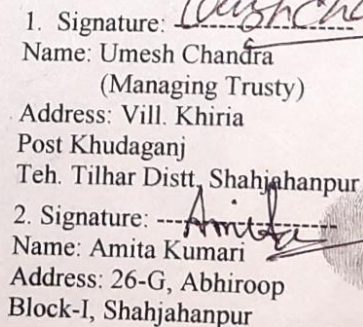 1. Signature: ---------------
Name: Umesh Chandra
(Managing Trusty)
Address: Vill. Khiria
Post Khudaganj
Teh. Tilhar Distt, Shahjahanpur
2. Signature: ---Amita---------
Name: Amita Kumari
Address: 26-G, Abhiroop
Block-I, Shahjahanpur